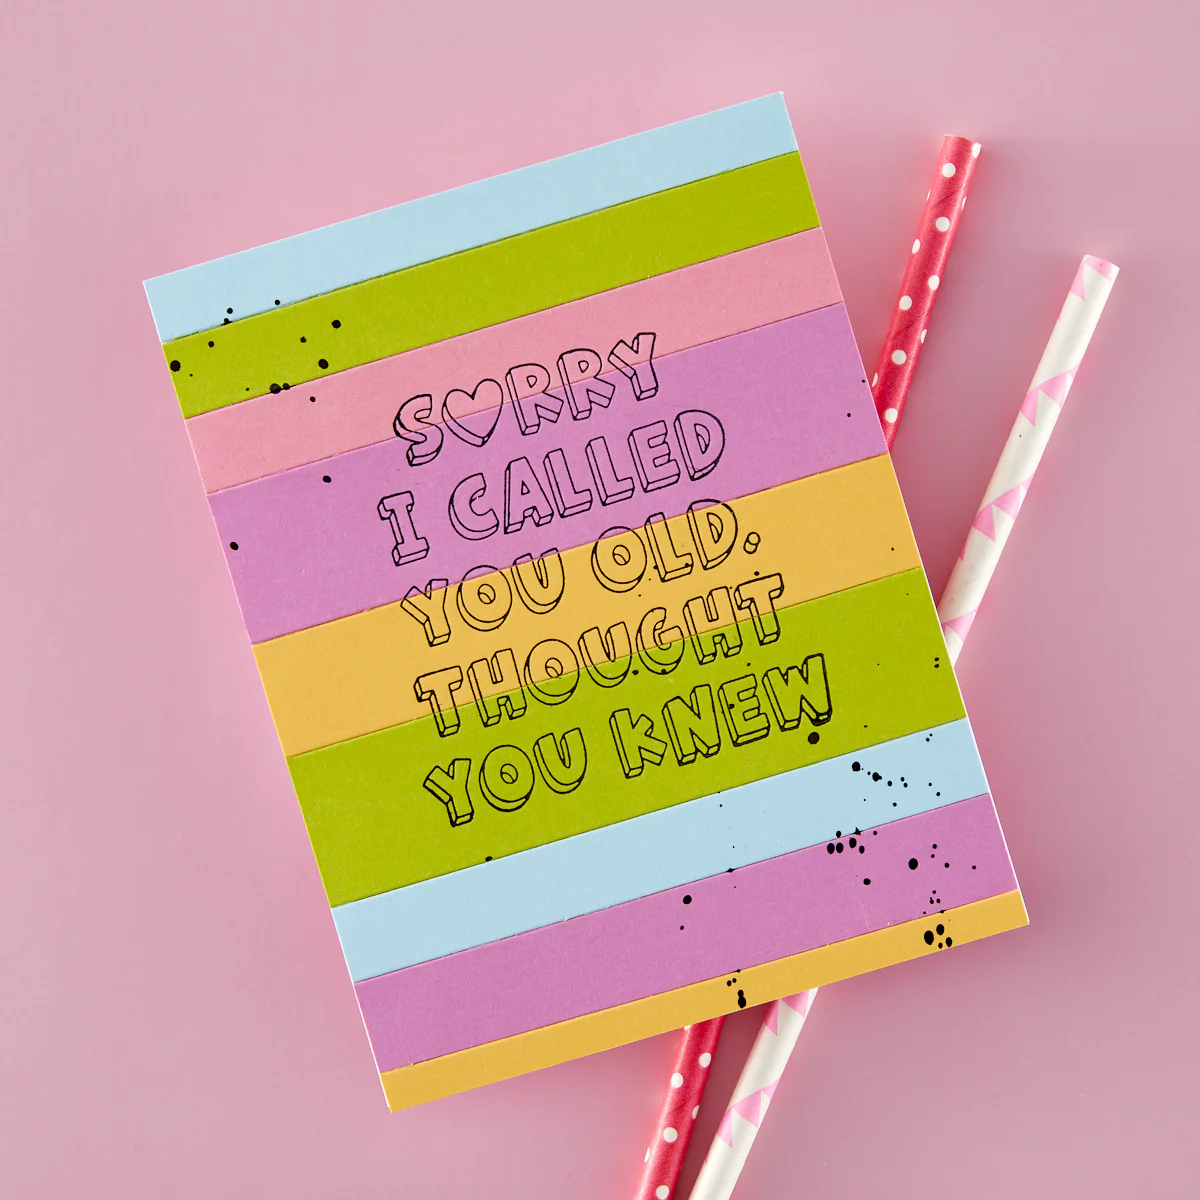 S♡RRY
I CALLED
YOU OLD.
THOUGHT
YOU KNEW